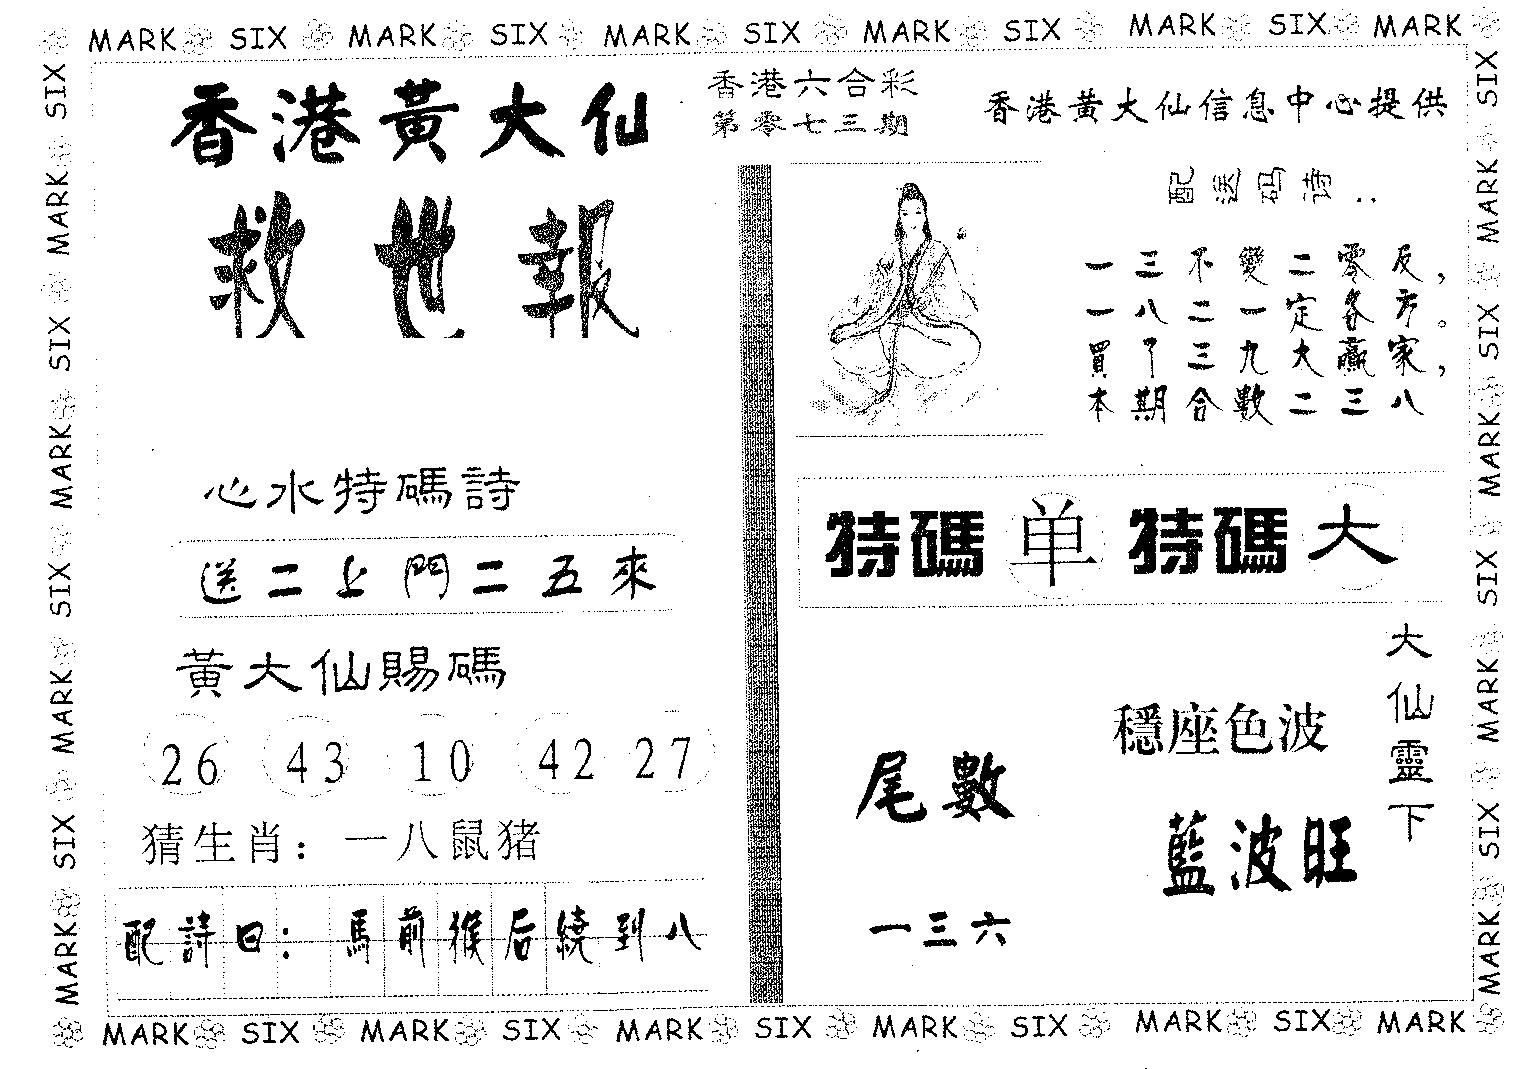 MARK SIX MARK SIX MARK SIX MARK SIX MARK SIX MARK
香港黃大仙
救世報
香港六合彩
第零七三期
香港黃大仙信息中心提供
配送码诗..
一三不變二零反，
一八二一定各方。
買了三九大贏家，
本期合數二三八
心水特碼詩
送二上門二五來
黃大仙賜碼
26 43 10 42 27
猜生肖：一八鼠猪
配詩曰：馬前猴后繞到八
特碼单特碼大
大仙靈下
穩座色波
藍波旺
尾數
一三六
SIX MARK SIX MARK SIX MARK SIX MARK
SIX MARK SIX MARK SIX MARK SIX MARK
MARK SIX MARK SIX MARK SIX MARK SIX MARK SIX MARK